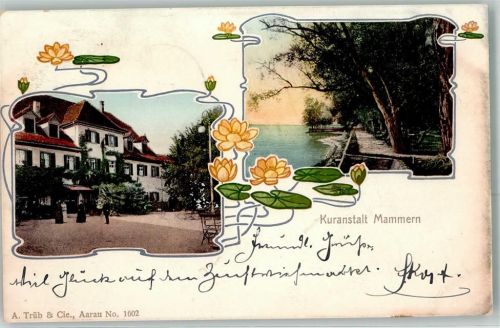 Kuranstalt Mammern
Freundl. Grüße
Viel Glück auf dem
A. Trüb & Cie., Aarau No. 1602